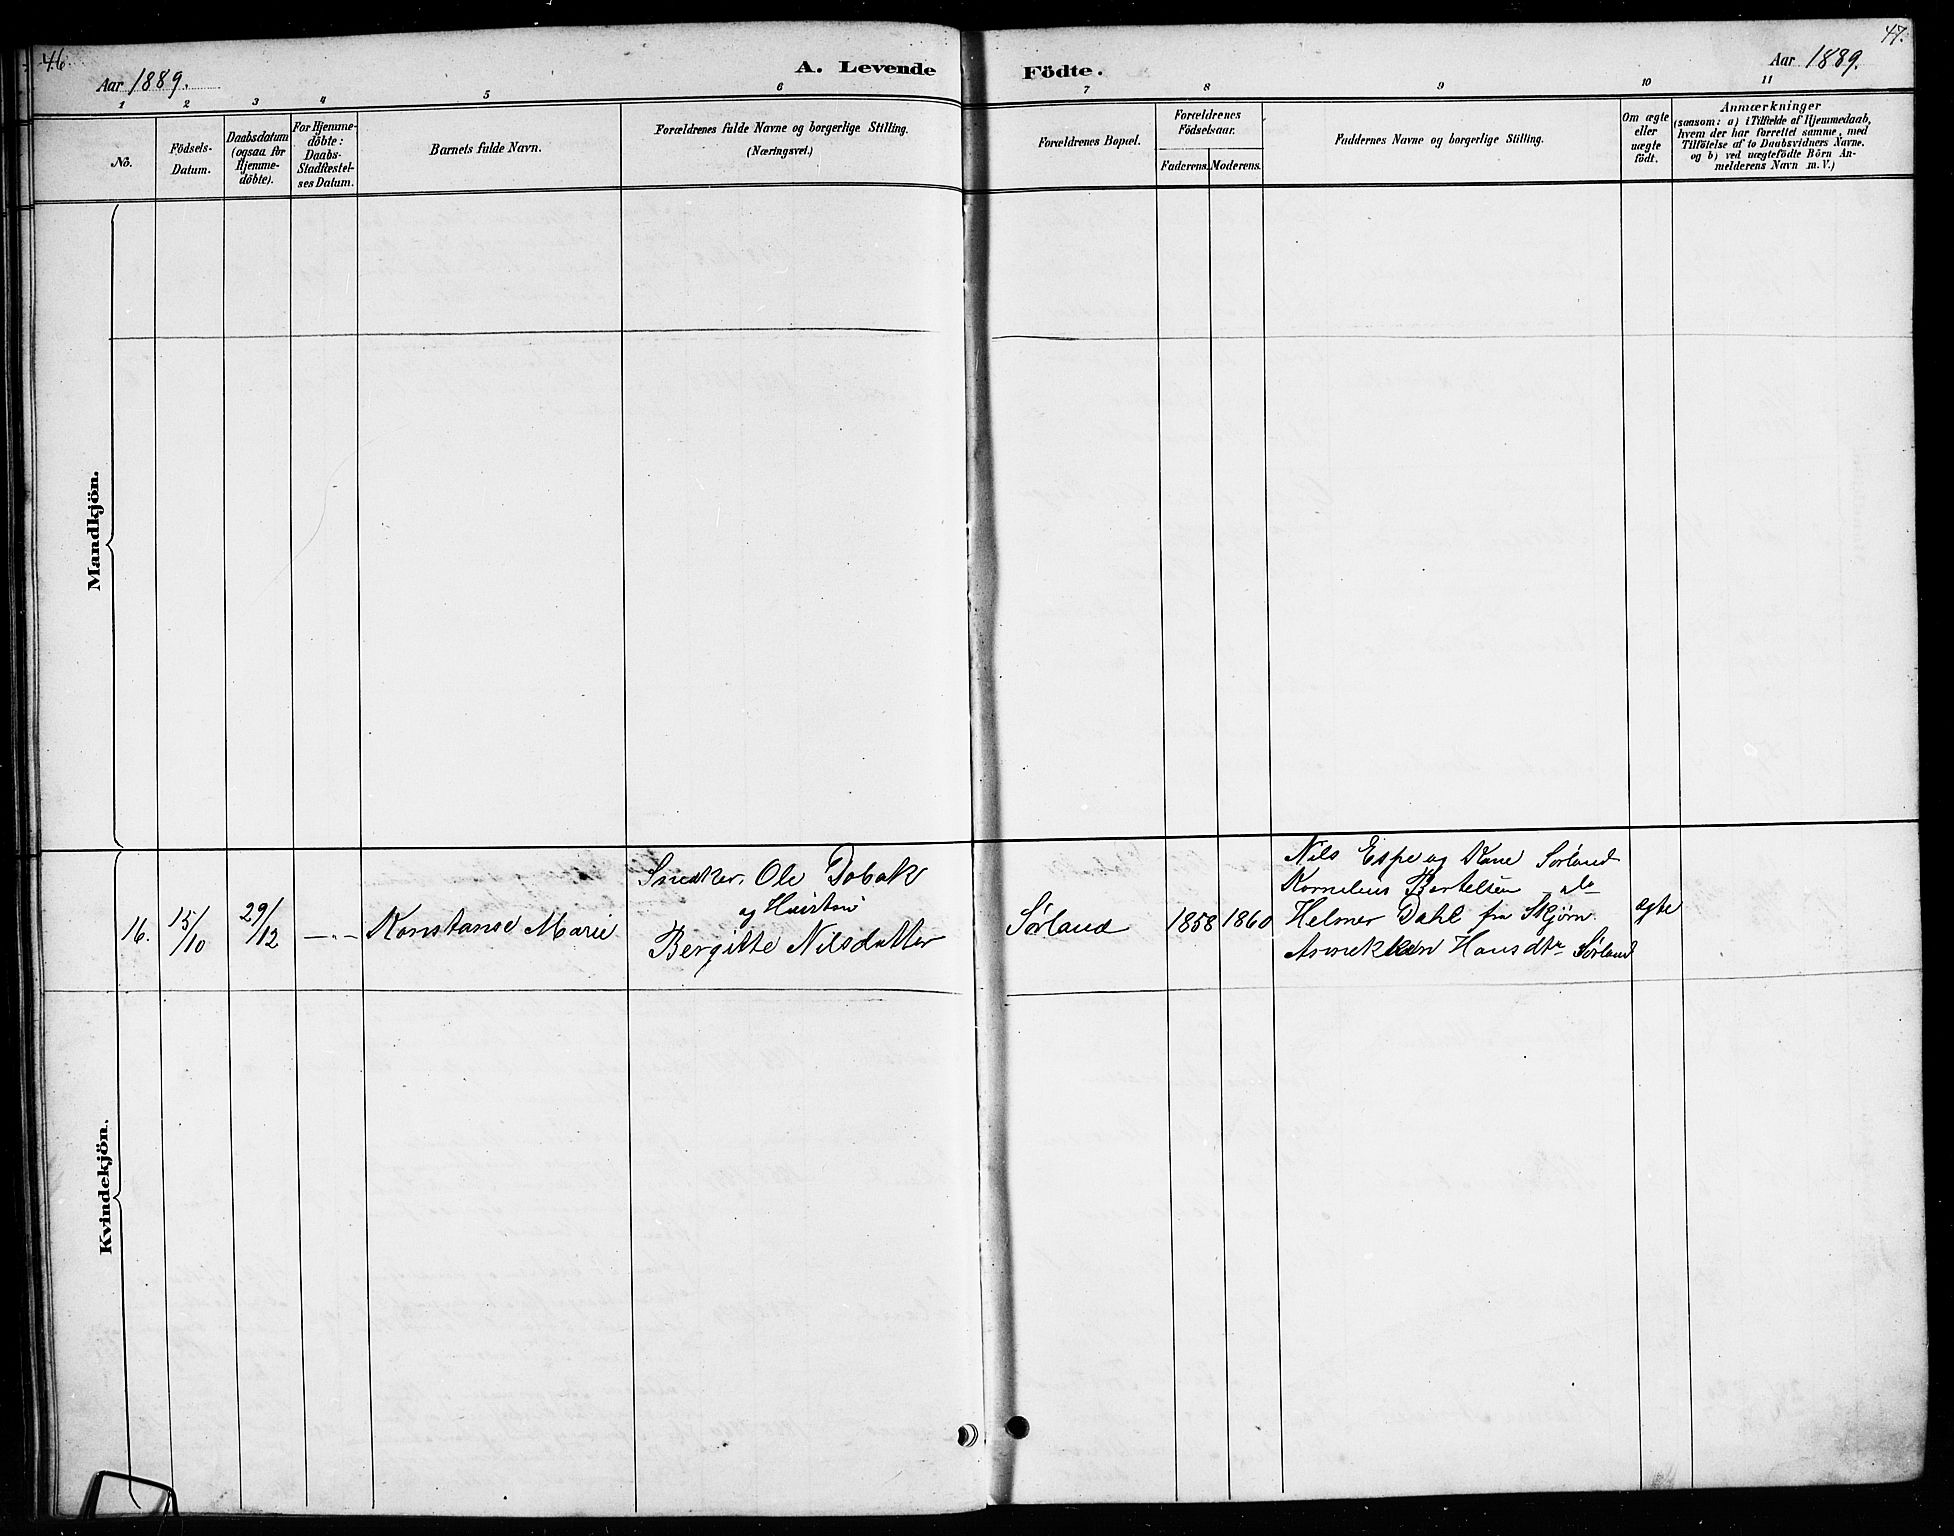 46.
47.
Aar 1889.
A. Levende Födte.
Aar 1889.
1 2 3 4 5 6 7 8 9 10 11
No.
Födsels-
Datum.
Daabsdatum
(ogsaa for
Hjemme-
döbte).
For Hjemme-
döbte:
Daabs-
Stadfæstel-
ses Datum.
Barnets fulde Navn.
Forældrenes fulde Navne og borgerlige Stilling.
(Næringsvei.)
Forældrenes Bopæl.
Forældrenes
Födselsaar.
Faderens. Moderens.
Faddernes Navne og borgerlige Stilling.
Om ægte
eller
uægte
födt.
Anmærkninger
(saasom: a) i Tilfælde af Hjemmedaab,
hvem der har forrettet samme, med
Tilföielse af to Daabsvidners Navne.
og b) ved uægtefödte Börn An-
melderens Navn m. V.)
Mandkjön.
Kvindekjön.
16.
15/10
29/12
—"—
Konstanse Marie
Snedker Ole Dobak
og Hustru
Bergitte Nilsdatter
Sørland
1858
1860
Nils Espe og Kone Sørland
Kornelius Bertelsen do
Helmer Dahl fra Skjørn
Hansdtr Sørland
ægte